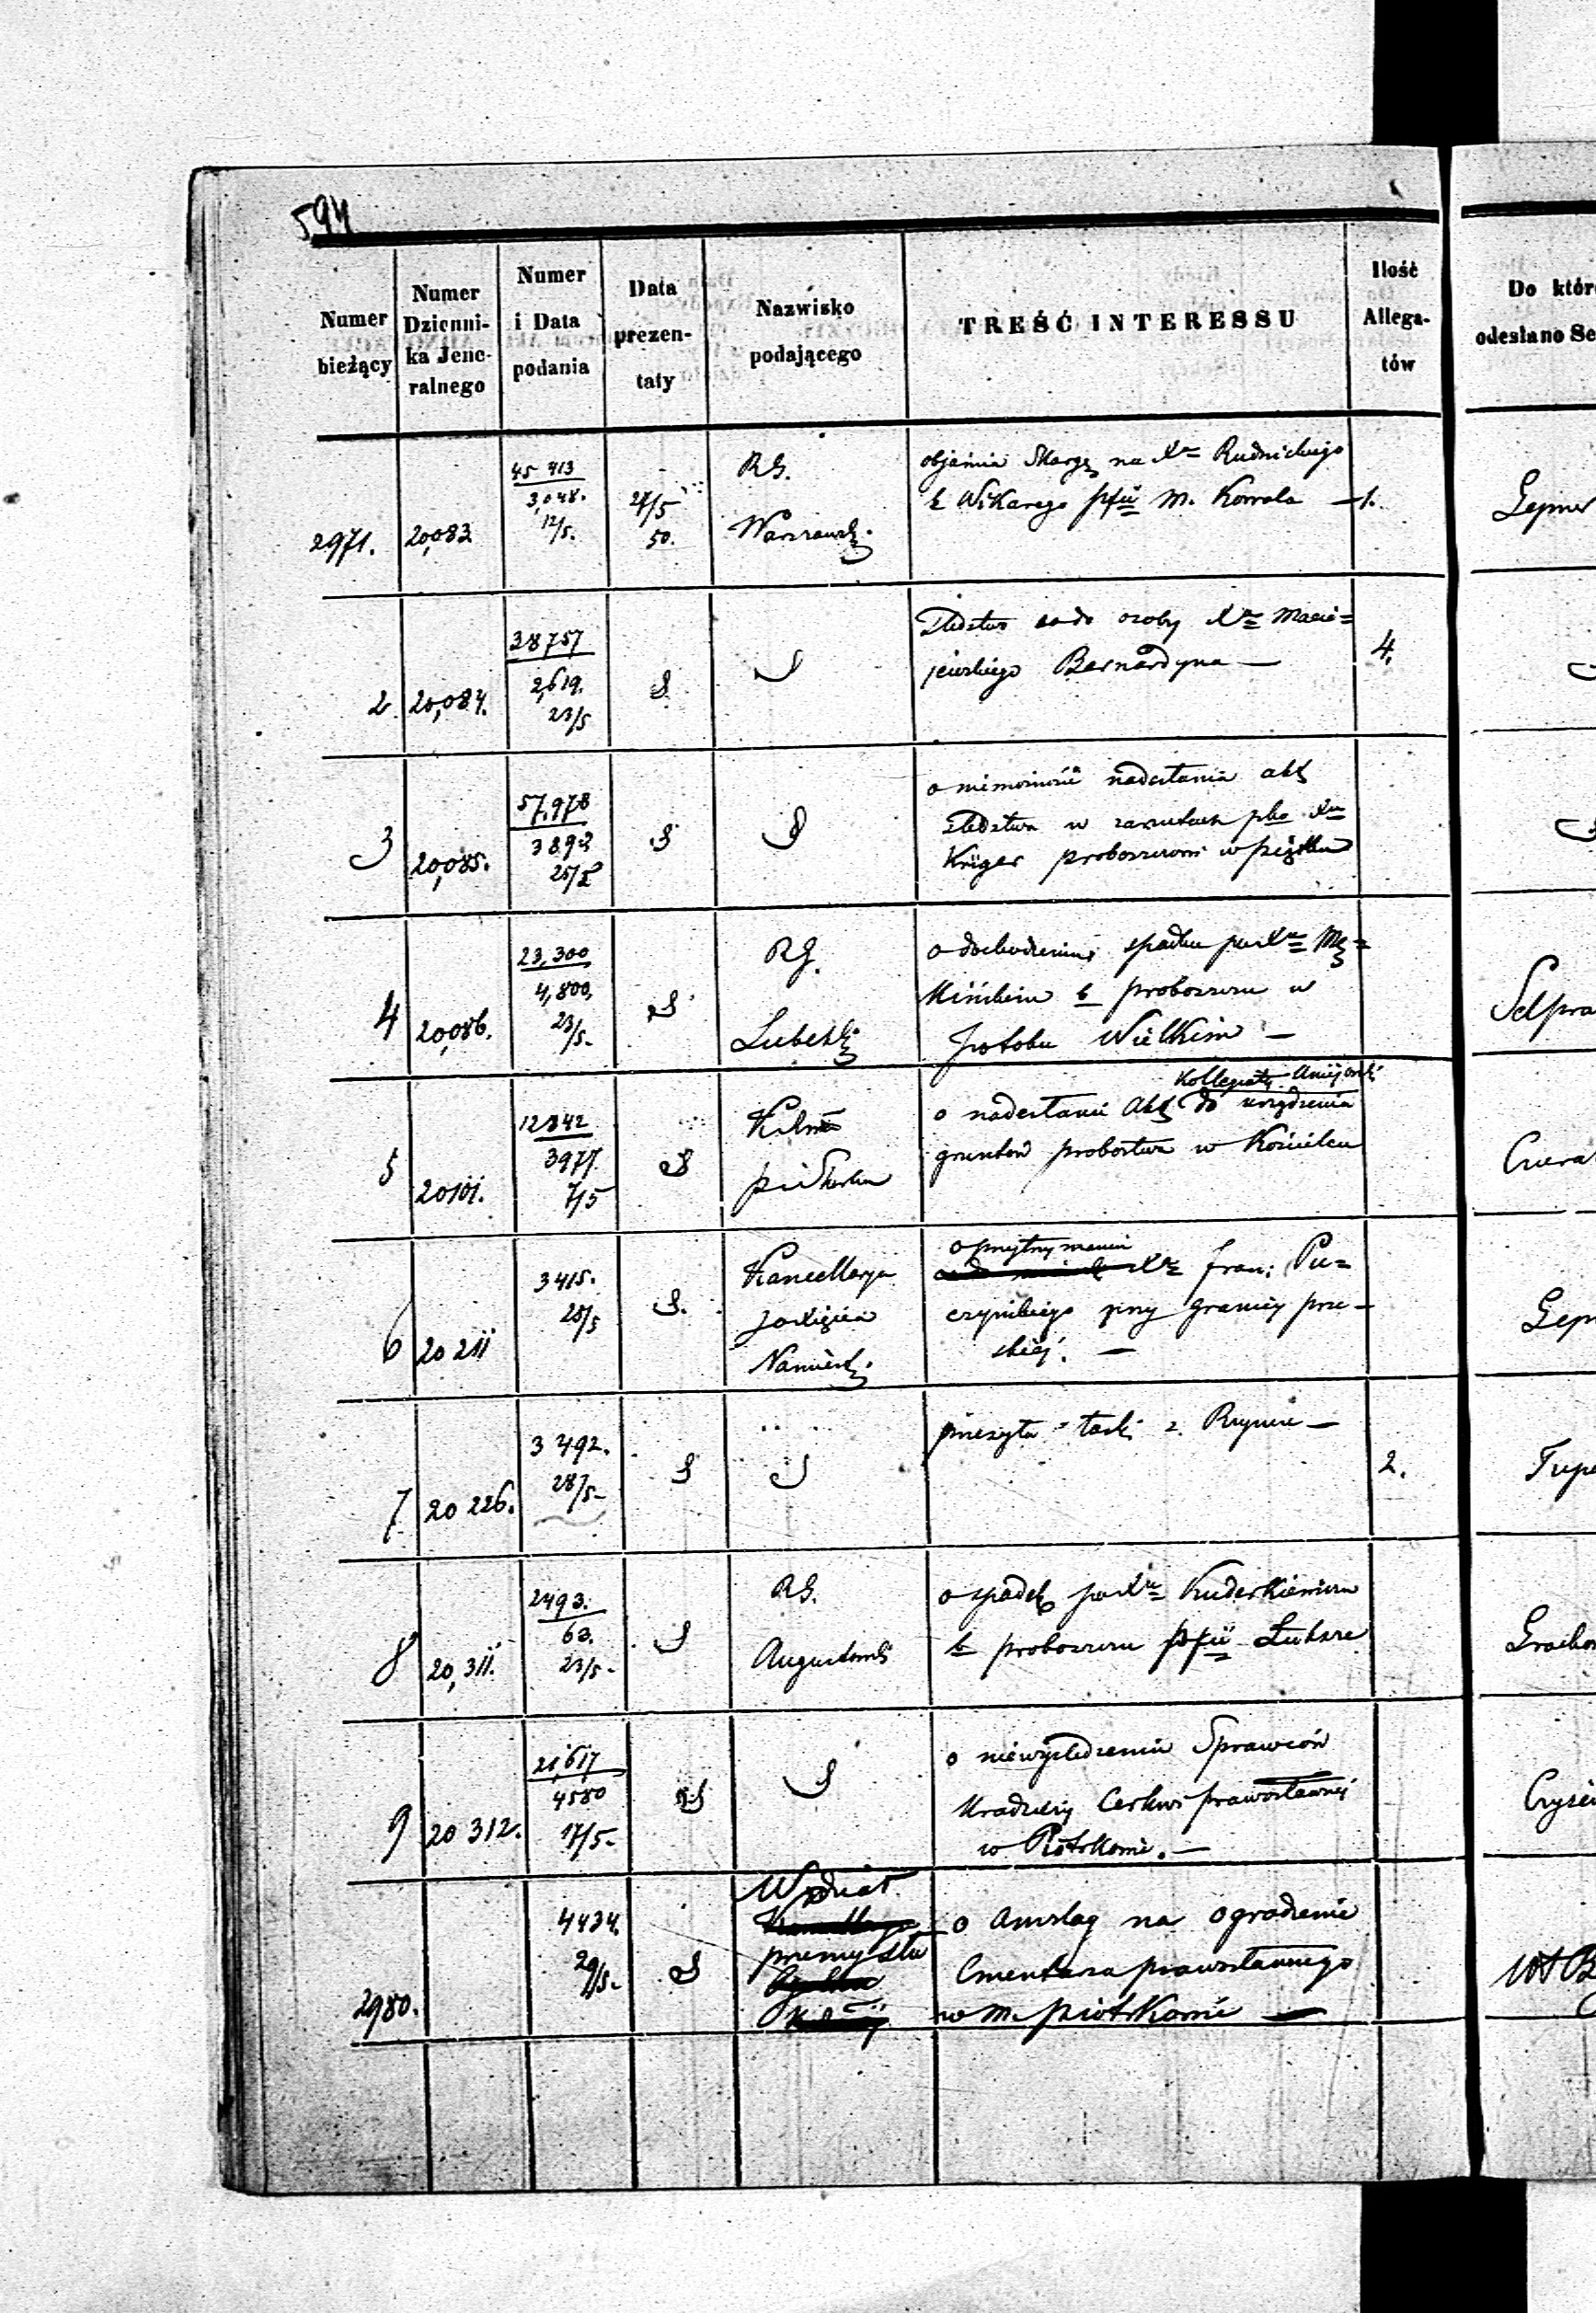 594
Numer bieżący
Numer Dzienni-ka Jene-ralnego
Numer i Data podania
Data prezen-taty
Nazwisko podającego
TREŚĆ INTERESSU
Ilość Allega-tów
Do któr
odesłano Se
2971. 20,083. 45 413 3,048. 12/5. 27/5 50. RG. Warszawsk.
objaśnia Skargę na Xa Rudnickiego
b Wikarego pfii m. Kowala — 1.
Lepner
2 20,084. 38757 2,619. 23/5
Śledztwo co do osoby Xa Macie=
jewskiego Bernardyna — 4.
3 20,085. 57,978 3893 25/5
o niemożności nadesłania akt
Śledztwa w zarzutach pko Xu
Krüger proboszczowi w
4 20,086. 23,300, 4,800, 23/5. RG. Lubelsk
o dochodzeniu spadku po Xu Mę=
cińskim b proboszczu w
Potoku Wielkim —
5 20101. 12842 3977. 7/5
Kollegiaty
o nadesłanie Akt do urządzenia
gruntów probostwa w Kościelcu
6 20211 3415. 28/5 Kancellarya
Namiest.
o przytrzymaniu
Xa Fran: Pu=
czyńskiego przy granicy pru-
skiej. —
Lep
7 20 226. 3 492. 28/5-
przesyła taski z Rzymu — 2.
8 20,311. 2493. 63. 23/5- RG. Augustowsk
o spadek po Xu Kuderkiewiczu
b proboszczu pfii Łuksze
9 20 312. 21,617 4580 17/5-
o niewyśledzeniu Sprawców
Kradzieży Cerkwi prawosławnej
w Piotrkowie. —
2980. 4434. 29/5- Wydział
przemysłu
o Anszlag na ogrodzenie
Cmentarza prawosławnego
w m. Piotrkowie —